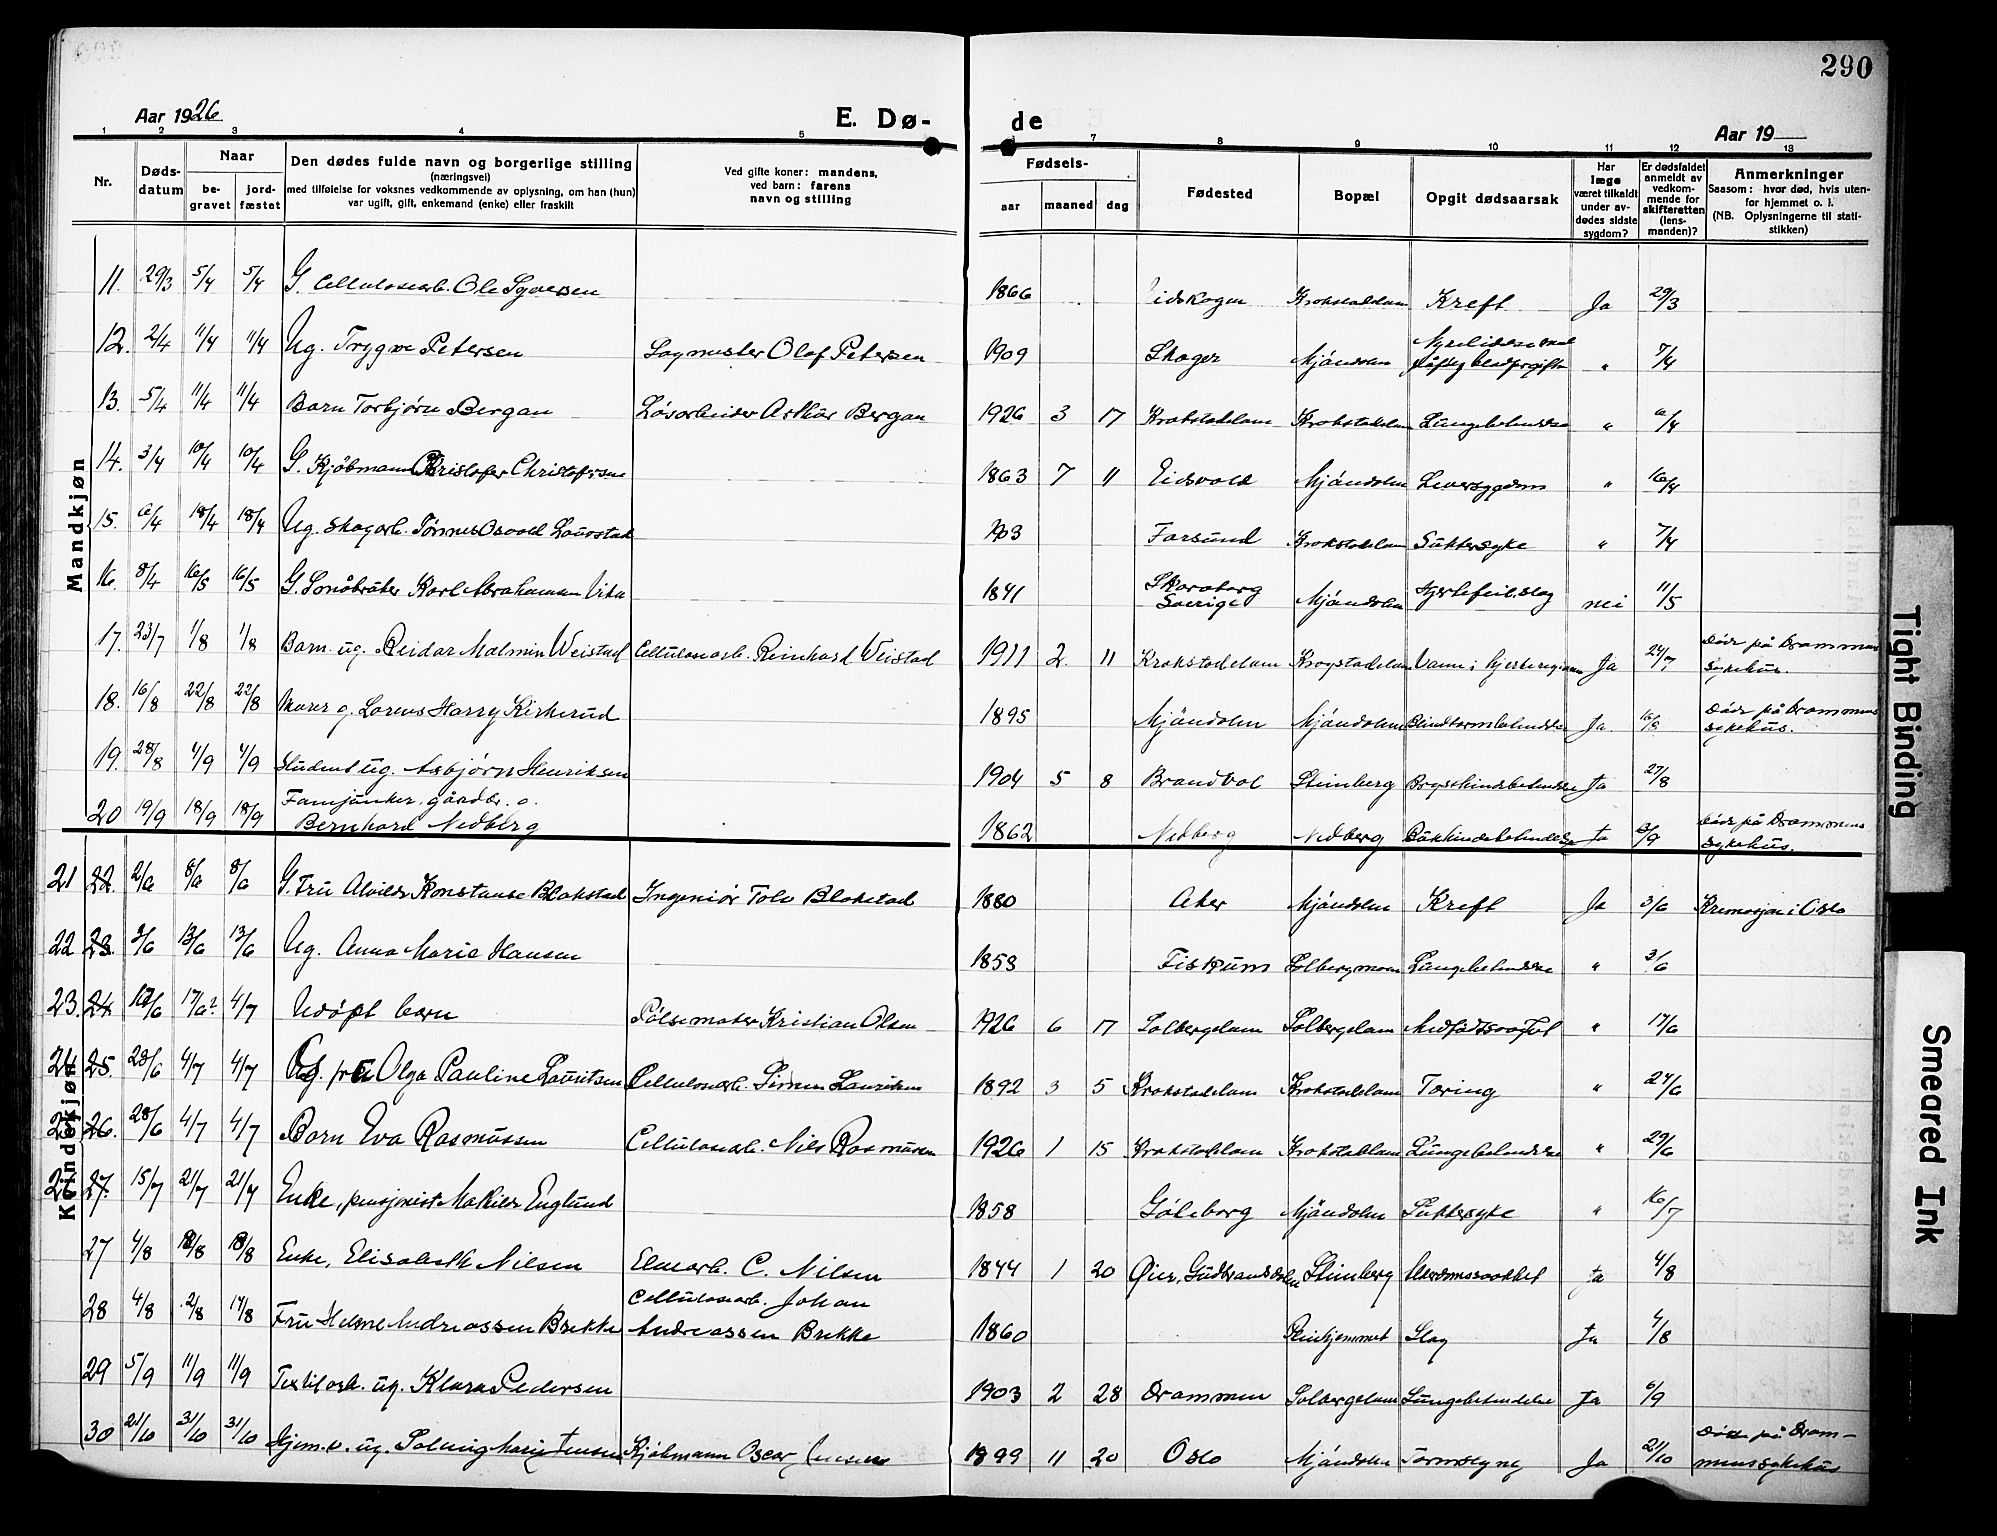 290
Aar 1926
E. Dø-
de
Aar 19
1 2 3 4 5 7 8 9 10 11 12 13
Nr.
Døds-
datum
Naar
be-
gravet
jord-
fæstet
Den dødes fulde navn og borgerlige stilling
(næringsvei)
med tilføielse for voksnes vedkommende av oplysning, om han (hun)
var ugift, gift, enkemand (enke) eller fraskilt
Ved gifte koner: mandens,
ved barn: farens
navn og stilling
Fødsels-
aar maaned dag
Fødested
Bopæl
Opgit dødsaarsak
Har
læge
været tilkaldt
under av-
dødes sidste
sygdom?
Er dødsfaldet
anmeldt av
vedkom-
mende for
skifteretten
(lens-
manden)?
Anmerkninger
Saasom: hvor død, hvis uten-
for hjemmet o. l.
(NB. Oplysningerne til stati-
stikken)
Mandkjøn
11. 29/3 5/4 5/4 G. Cellulosearb. Ole Syversen 1866 Eidskogen Krokstadelven Kreft Ja 29/3
12. 2/4 11/4 11/4 Ug. Trygve Petersen Sagmester Olaf Petersen 1909 Skoger Mjøndalen " 7/4
13. 5/4 11/4 11/4 Barn Torbjørn Bergan Løsarbeider Asthur Bergan 1926 3 17 Krokstadelven Krokstadelven Lungebetændelse " 6/4
14. 3/4 10/4 10/4 G. Kjøbmann Kristofer Christofersen 1863 7 11 Eidsvold Mjøndalen Leversygdom " 16/4
15. 6/4 18/4 18/4 Ug. skogarb. Tønnes Osvold Lauvstad 1903 Farsund Krokstadelven Sukkersyke " 7/4
16. 8/4 16/5 16/5 G. Karl Abrahamsen 1841 Skaraborg Sverige Mjøndalen Hjertefeil. slag nei 11/5
17. 23/7 1/8 1/8 Barn. ug. Reidar Malmin Weistad Cellulosearb. Reinhard Weistad 1911 2 11 Krokstadelven Krogstadelven Vann i hjerteregionen Ja 24/7 Døde på Drammens sykehus.
18. 16/8 22/8 22/8 Murer g. Lorens Harry Kirkerud 1895 Mjøndalen Mjøndalen Blindtarmbetændelse Ja. 16/8 Døde på Drammens sykehus.
19. 28/8 4/9 4/9 Student ug. Asbjørn Henriksen 1904 5 8 Brandvol Stenberg Brysthindebetændelse Ja 27/8
20 19/9 18/9 18/9 Fanejunker, gaardbr. g.
Bernhard Nedberg 1862 Nedberg Nedberg Bukhindebetændelse Ja Døde på Drammens sykehus.
Kvindekjøn
21 22. 2/6 8/6 8/6 G. Fru Alvilde Konstanse Blakstad Ingeniør Tolv Blakstad 1880 Aker Mjøndalen Kreft Ja 3/6 Kremasjon i Oslo
22 23. 3/6 13/6 13/6 Ug. Anna Marie Hansen 1853 Fiskum Solbergmoen Lungebetændelse " 3/6
23. 24 17/6 17/6? 4/7 Udøpt barn Pølsemaker Kristian Olsen 1926 6 17 Solbergelven Solbergelven Medfødt svakhet " 17/6
24 25. 23/6 4/7 4/7 G. fru Olga Pauline Lauritsen Cellulosearb. Simen Lauritsen 1892 3 5 Krokstadelven Krokstadelven Tæring " 24/6
25 26. 28/6 4/7 4/7 Barn Eva Rasmussen Cellulosearb. Nils Rasmussen 1926 1 15 Krokstadelven Krokstadelven Lungebetændelse " 29/6
26 27. 15/7 21/7 21/7 Enke, pensjonist Matilde Englund 1858 Gøteborg Mjøndalen Sukkersyke " 16/7
27 4/8 18/8 18/8 Enke, Elisabeth Nilsen Elvearb. C. Nilsen 1844 1 20 Øier, Gudbrandsdalen Stenberg Alderdomssvakhet Ja 4/8
28 4/8 12/8 17/8 Fru Helene Andreassen Brekke Cellulosearb. Johan
Andreassen Brekke 1860 Pleiehjemmet Slag Ja 4/8
29 5/9 11/9 11/9 Textilarb. ug. Klara Pedersen 1903 2 28 Drammen Solbergelven Lungebetændelse Ja 6/9
30 21/10 31/10 31/10 Hjemv. ug. Solveig Marie Jensen Kjøbmann Oscar Jensen 1899 11 20 Oslo Mjøndalen Tarmslyng Ja 21/10 Døde på Dram-
mens sykehus
Tight Binding
Smeared Ink